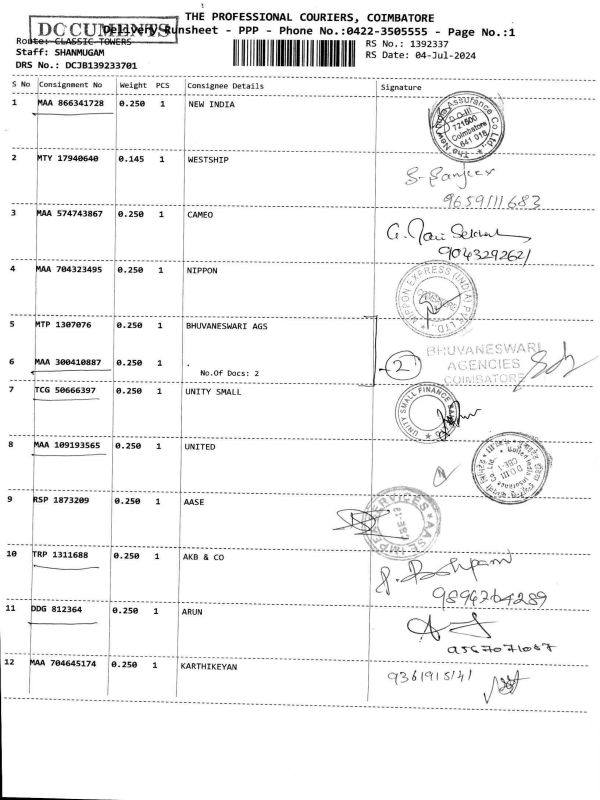 THE PROFESSIONAL COURIERS, COIMBATORE
DOCUMENTS
Delivery Runsheet - PPP - Phone No.:0422-3505555 - Page No.:1
Route: CLASSIC TOWERS
RS No.: 1392337
Staff: SHANMUGAM
RS Date: 04-Jul-2024
DRS No.: DCJB139233701
S No Consignment No Weight PCS Consignee Details Signature
1 MAA 866341728 0.250 1 NEW INDIA
Assurance Co. Ltd.
D.O.III
721500
Coimbatore
641 018
2 MTY 17940640 0.145 1 WESTSHIP
S. Sanjeev
9659111683
3 MAA 574743867 0.250 1 CAMEO
9043292621
4 MAA 704323495 0.250 1 NIPPON
NIPPON EXPRESS (INDIA) PVT. LTD.
5 MTP 1307076 0.250 1 BHUVANESWARI AGS
6 MAA 300410887 0.250 1 .
No.Of Docs: 2
2
BHUVANESWARI
AGENCIES
COIMBATORE
7 TCG 50666397 0.250 1 UNITY SMALL
UNITY SMALL FINANCE BANK
8 MAA 109193565 0.250 1 UNITED
United India Insurance Co. Ltd.
D.O.III
CBE-1
9 RSP 1873209 0.250 1 AASE
10 TRP 1311688 0.250 1 AKB & CO
11 DDG 812364 0.250 1 ARUN
12 MAA 704645174 0.250 1 KARTHIKEYAN
9361915141